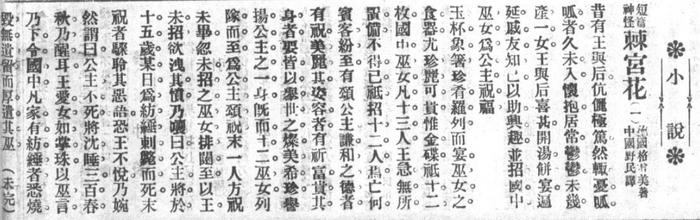 小說
短篇神怪 棘宮花 (一) 德國格林美著 中國野民譯
昔有王與后伉儷極篤然輒憂呱
呱者久未入懷抱居常鬱鬱未幾
產一女王與后喜甚開湯餅宴遍
延戚友知己以助興趣並招國中
巫女爲公主祝福
玉杯象箸珍肴羅列而宴巫女之
食器尤珍麗可貴惟金碟祗十二
枚國中巫女凡十三人王急無所
不得已祗招十二人焉亡何
賓客紛至有頌公主謙和之德者
有祝美麗其姿容者有祈富貴其
身者要皆以舉世之燦美希珍譽
揚公主之一身旣而十二巫女列
隊而至爲公主頌祝末一人方祝
未畢忽未招之巫女排闥至以王
未招欲洩其憤乃曰公主將於
十五歲某日爲紡錘刺斃而死末
祝者驟聆其惡語恐王不悅乃婉
然謂曰公主不死將沈睡三百春
秋乃醒耳王愛女如掌珠以巫言
乃下令國中凡家有紡錘者悉燒
毀無遺留而厚遣其巫 (未完)